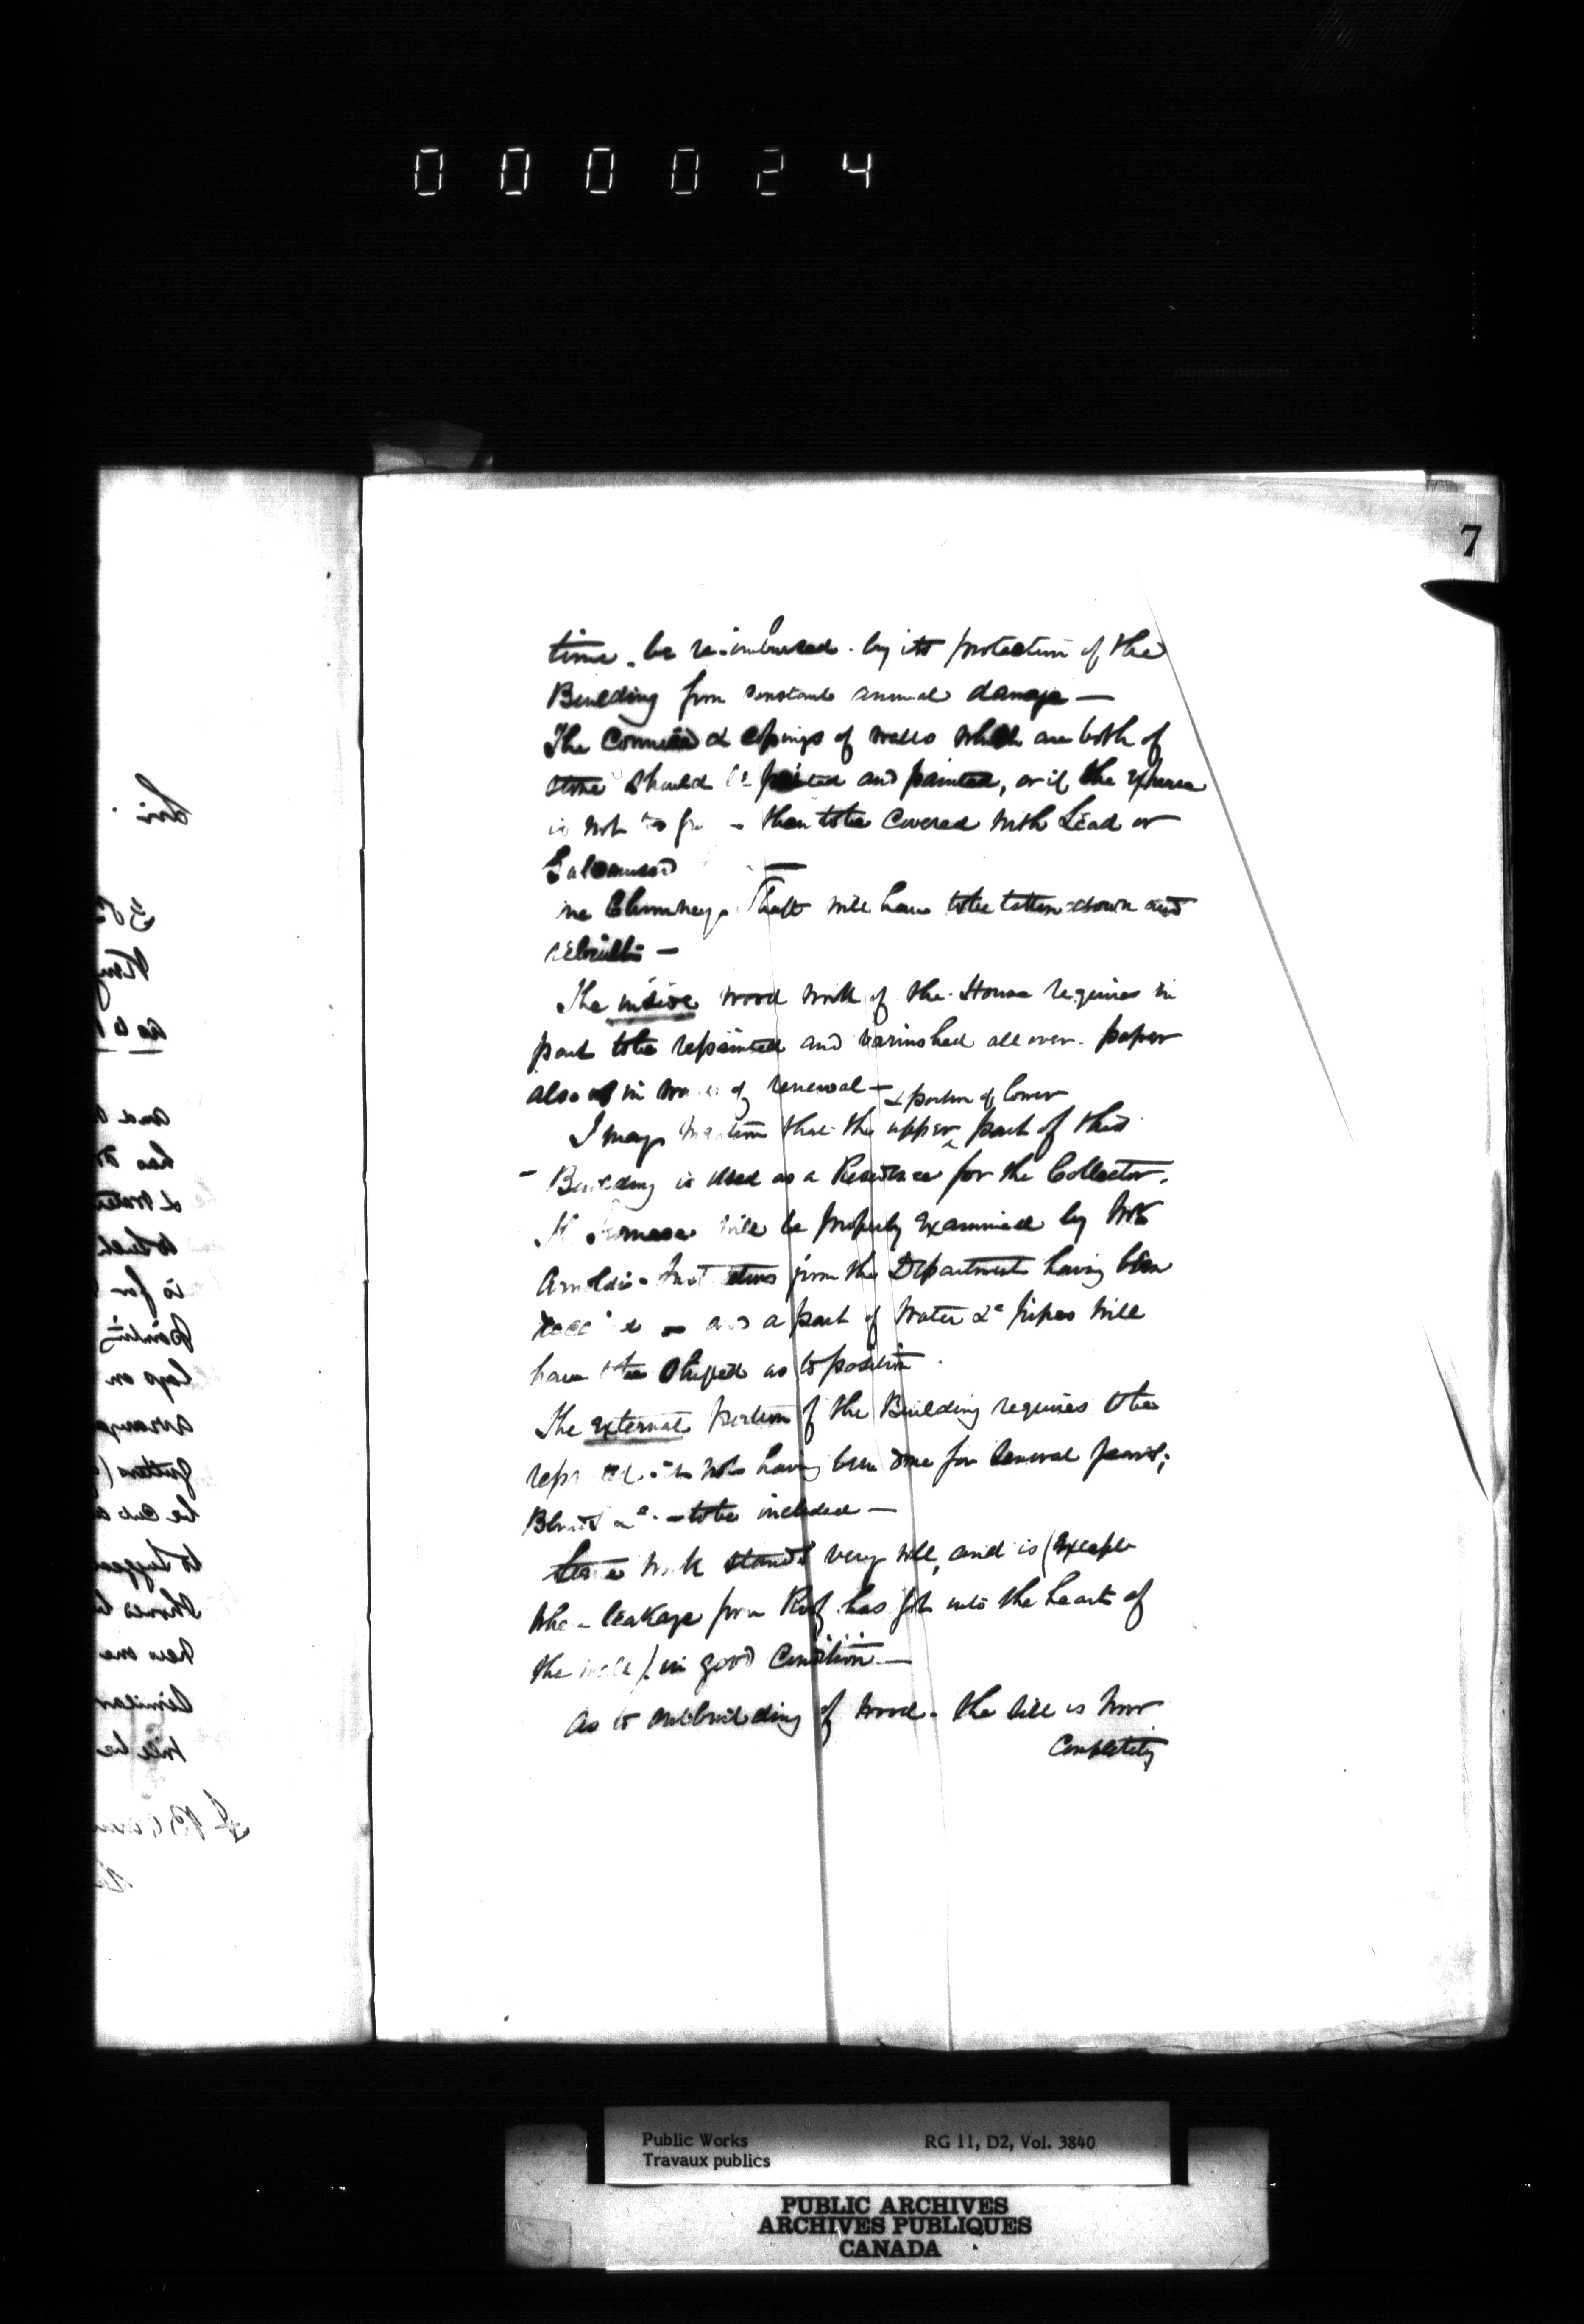 000024
7
time be reimbursed by its protection of the
Building from constant annual damage —
The Cornice & copings of walls which are both of
stone should be pointed and painted, or if the expense
is not to — then to be Covered with Lead or
Galvanised
Chimney Shaft will have to be taken down and
rebuilt —
The inside wood work of the House requires in
part to be repainted and varnished all over. paper
also in of renewal —
& portion of lower
I may mention that the upper ^ part of this
Building is used as a Residence for the Collector.
Furnace will be properly examined by Mr
Arnoldi - Instructions from the Department having been
received — and a part of Water &c pipes will
have to be as to position
The external portion of the Building requires to be
not having been done for several years;
Blinds &c — to be included —
work stands very well, and is (except
where leakage from Roof has got into the heart of
the wall) in good Condition —
As to outbuilding of wood - the sill is now
Completely
Sir
and
has
is for
lap on
gutters (
new one
similar
will be
Public Works
Travaux publics
RG 11, D2, Vol. 3840
PUBLIC ARCHIVES
ARCHIVES PUBLIQUES
CANADA